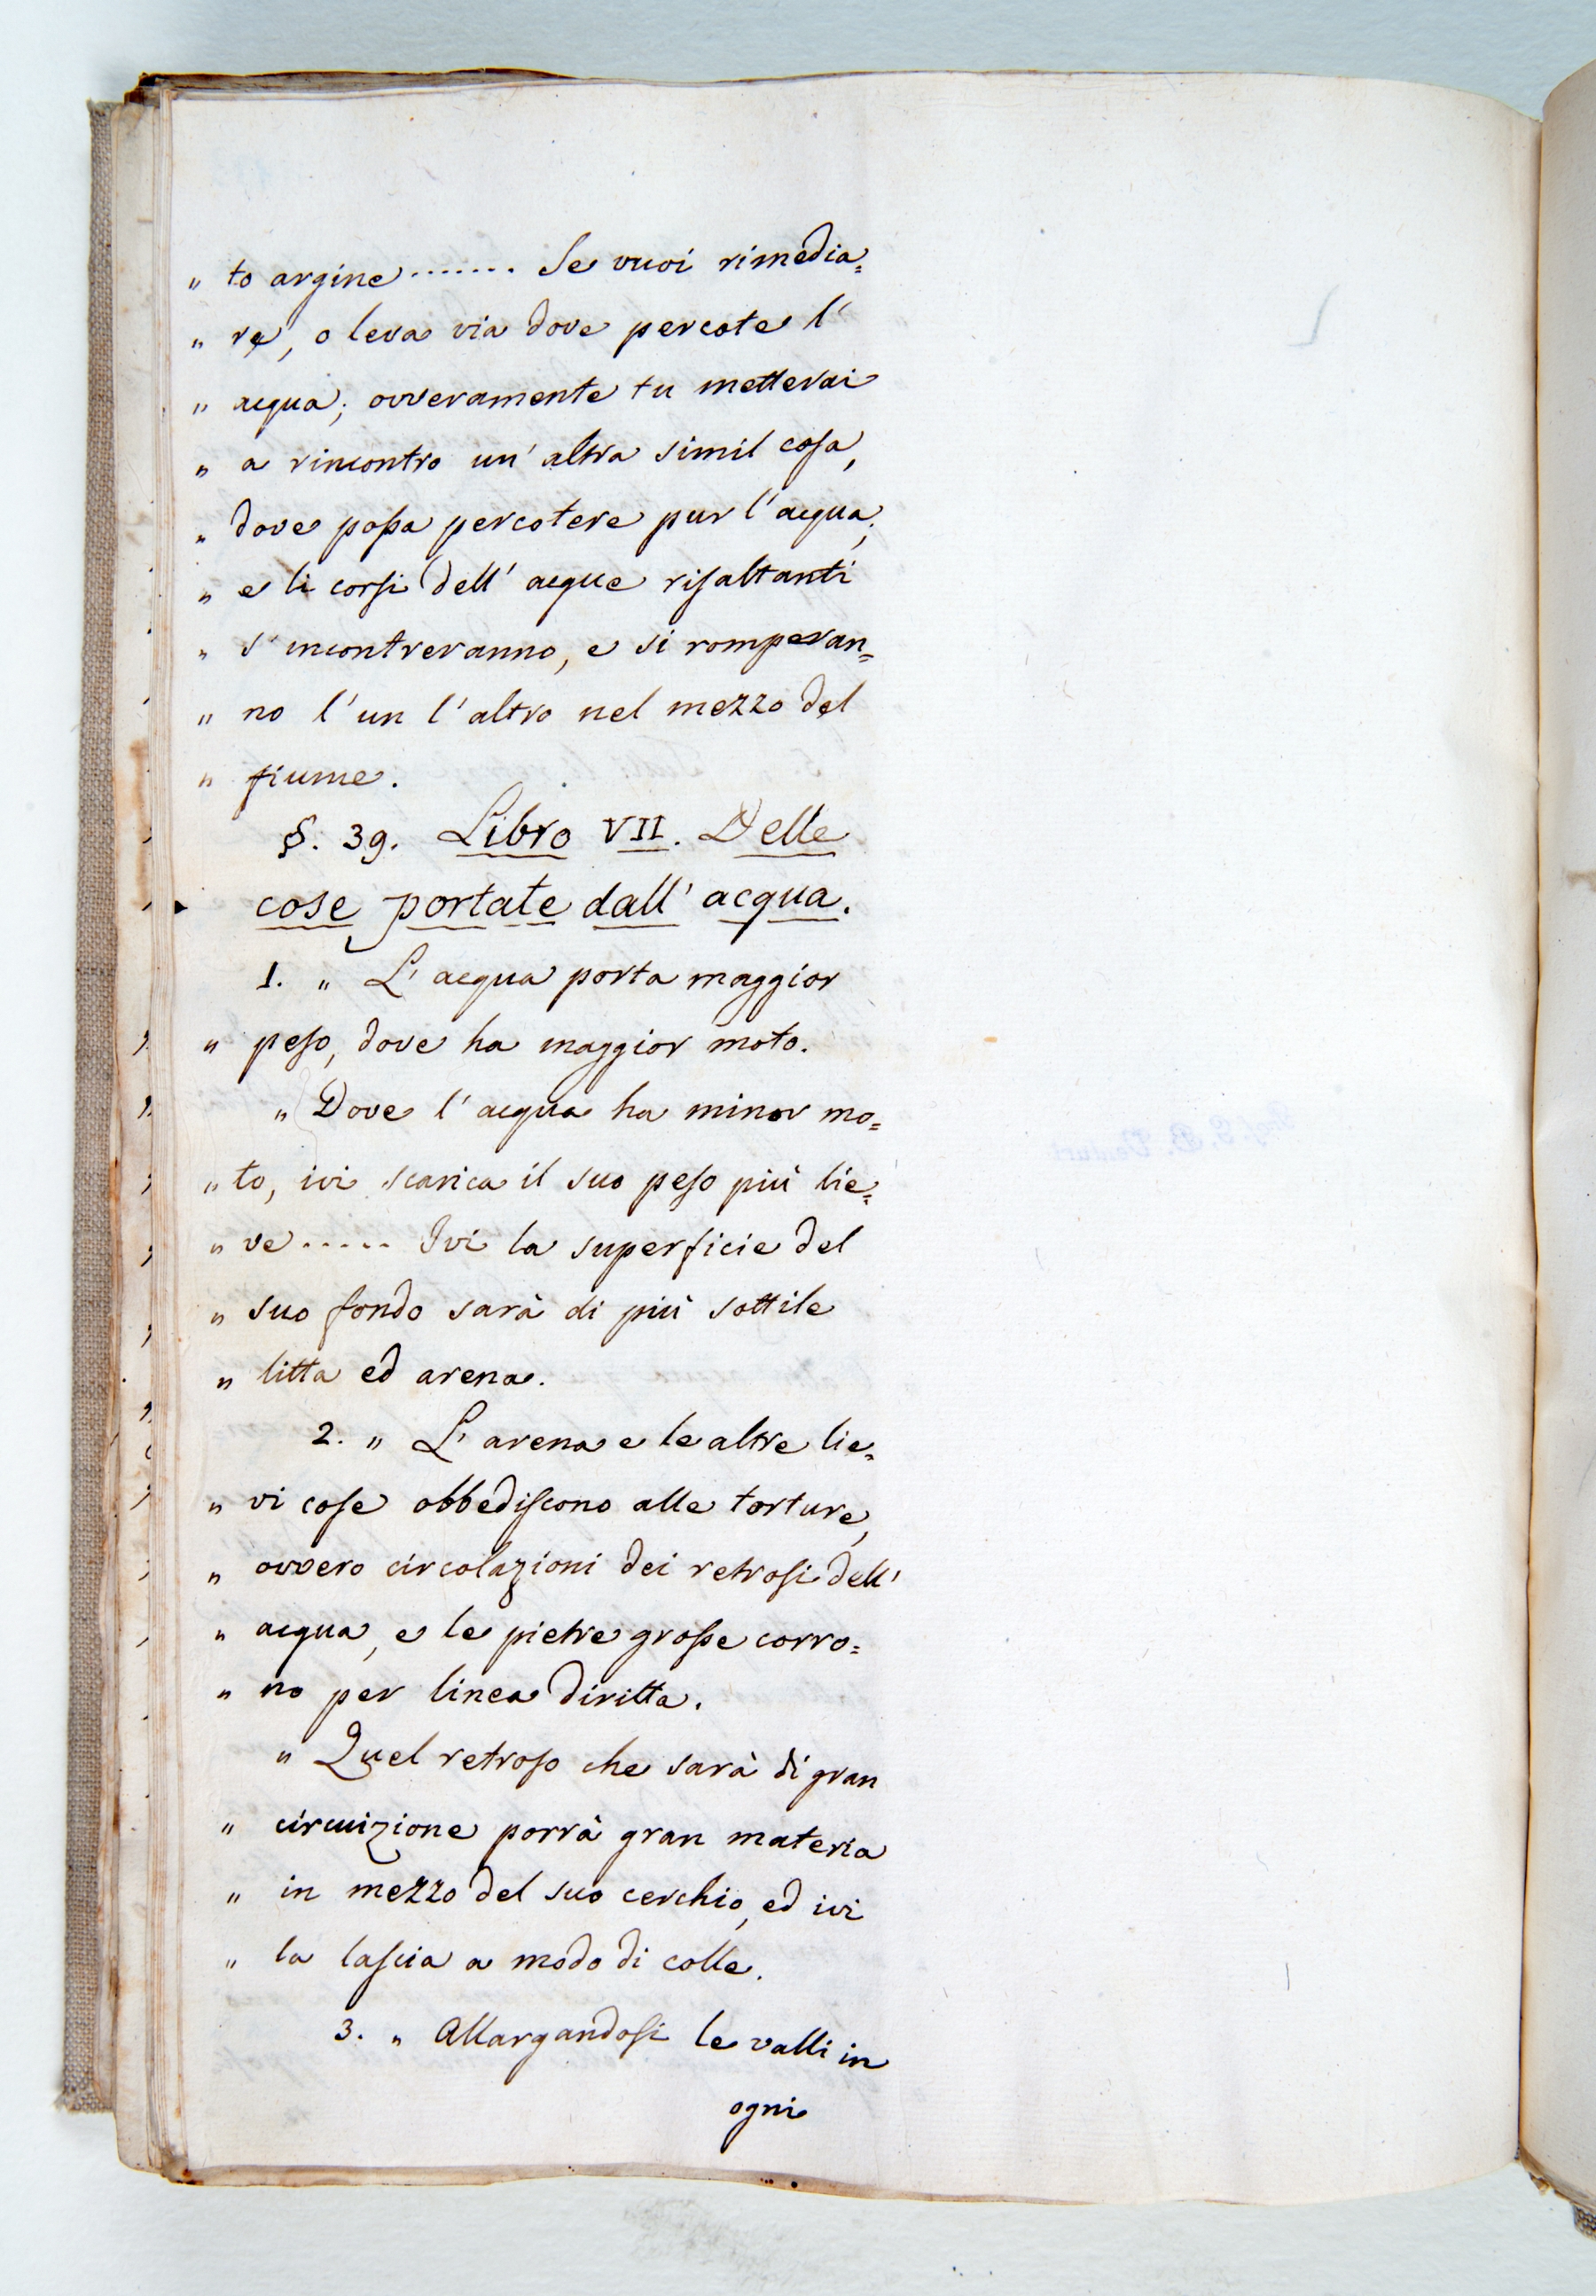 „ to argine ....... Se vuoi rimedia=
„ re, o leva via dove percote l'
„ acqua; ovveramente tu metterai
„ a rincontro un' altra simil cosa,
„ dove possa percotere pur l'acqua;
„ e li corsi dell' acque risaltanti
„ s' incontreranno, e si romperan=
„ no l'un l'altro nel mezzo del
„ fiume.
§. 39. Libro VII. Delle
cose portate dall' acqua.
1. „ L' acqua porta maggior
„ peso, dove ha maggior moto.
„ Dove l' acqua ha minor mo=
„ to, ivi scarica il suo peso più lie=
„ ve ..... Ivi la superficie del
„ suo fondo sarà di più sottile
„ litta ed arena.
2. „ L' arena e le altre lie=
„ vi cose obbediscono alle torture,
„ ovvero circolazioni dei retrosi dell'
„ acqua, e le pietre grosse corro=
„ no per linea diritta.
„ Quel retroso che sarà di gran
„ circuizione porrà gran materia
„ in mezzo del suo cerchio, ed ivi
„ la lascia a modo di colle.
3. „ Allargandosi le valli in
ogni